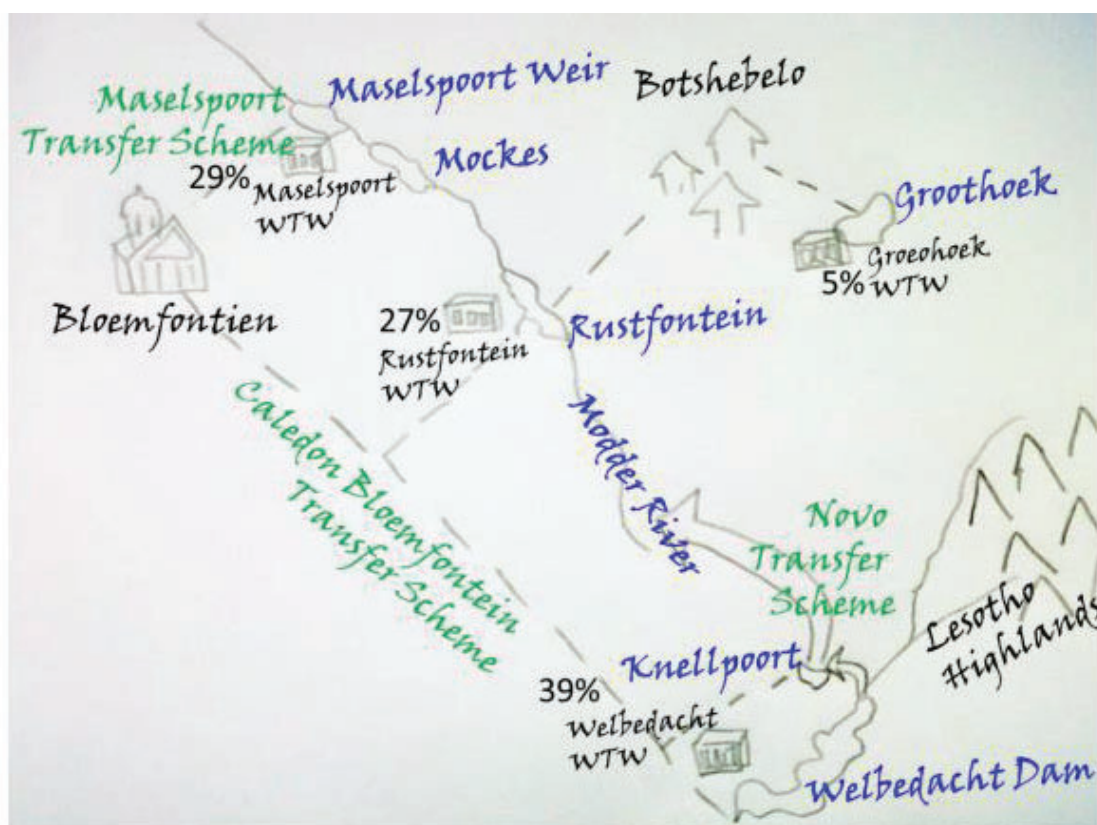 Maselspoort
Transfer Scheme
Maselspoort Weir
Botshebelo
Mockes
29%
Maselspoort
WTW
Groothoek
Groeohoek
5% WTW
Bloemfontien
27%
Rustfontein
WTW
Rustfontein
Caledon Bloemfontein
Transfer Scheme
Modder River
Novo
Transfer
Scheme
Lesotho
Highlands
Knellpoort
39%
Welbedacht
WTW
Welbedacht Dam